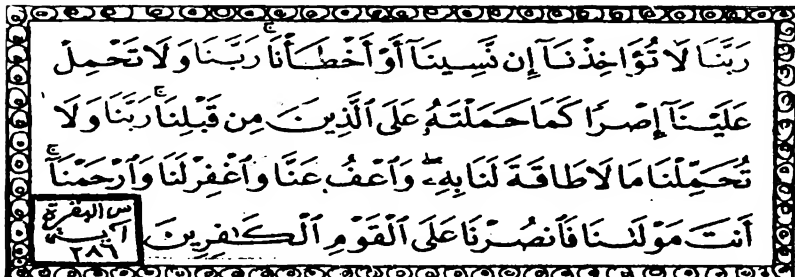 رَبَّنَا لَا تُؤَاخِذْنَآ إِن نَّسِينَآ أَوْ أَخْطَأْنَا ۚ رَبَّنَا وَلَا تَحْمِلْ
عَلَيْنَآ إِصْرًا كَمَا حَمَلْتَهُۥ عَلَى ٱلَّذِينَ مِن قَبْلِنَا ۚ رَبَّنَا وَلَا
تُحَمِّلْنَا مَا لَا طَاقَةَ لَنَا بِهِۦ ۖ وَٱعْفُ عَنَّا وَٱغْفِرْ لَنَا وَٱرْحَمْنَآ ۚ
أَنتَ مَوْلَىٰنَا فَٱنصُرْنَا عَلَى ٱلْقَوْمِ ٱلْكَٰفِرِينَ
س البقرة
آيـة
٢٨٦